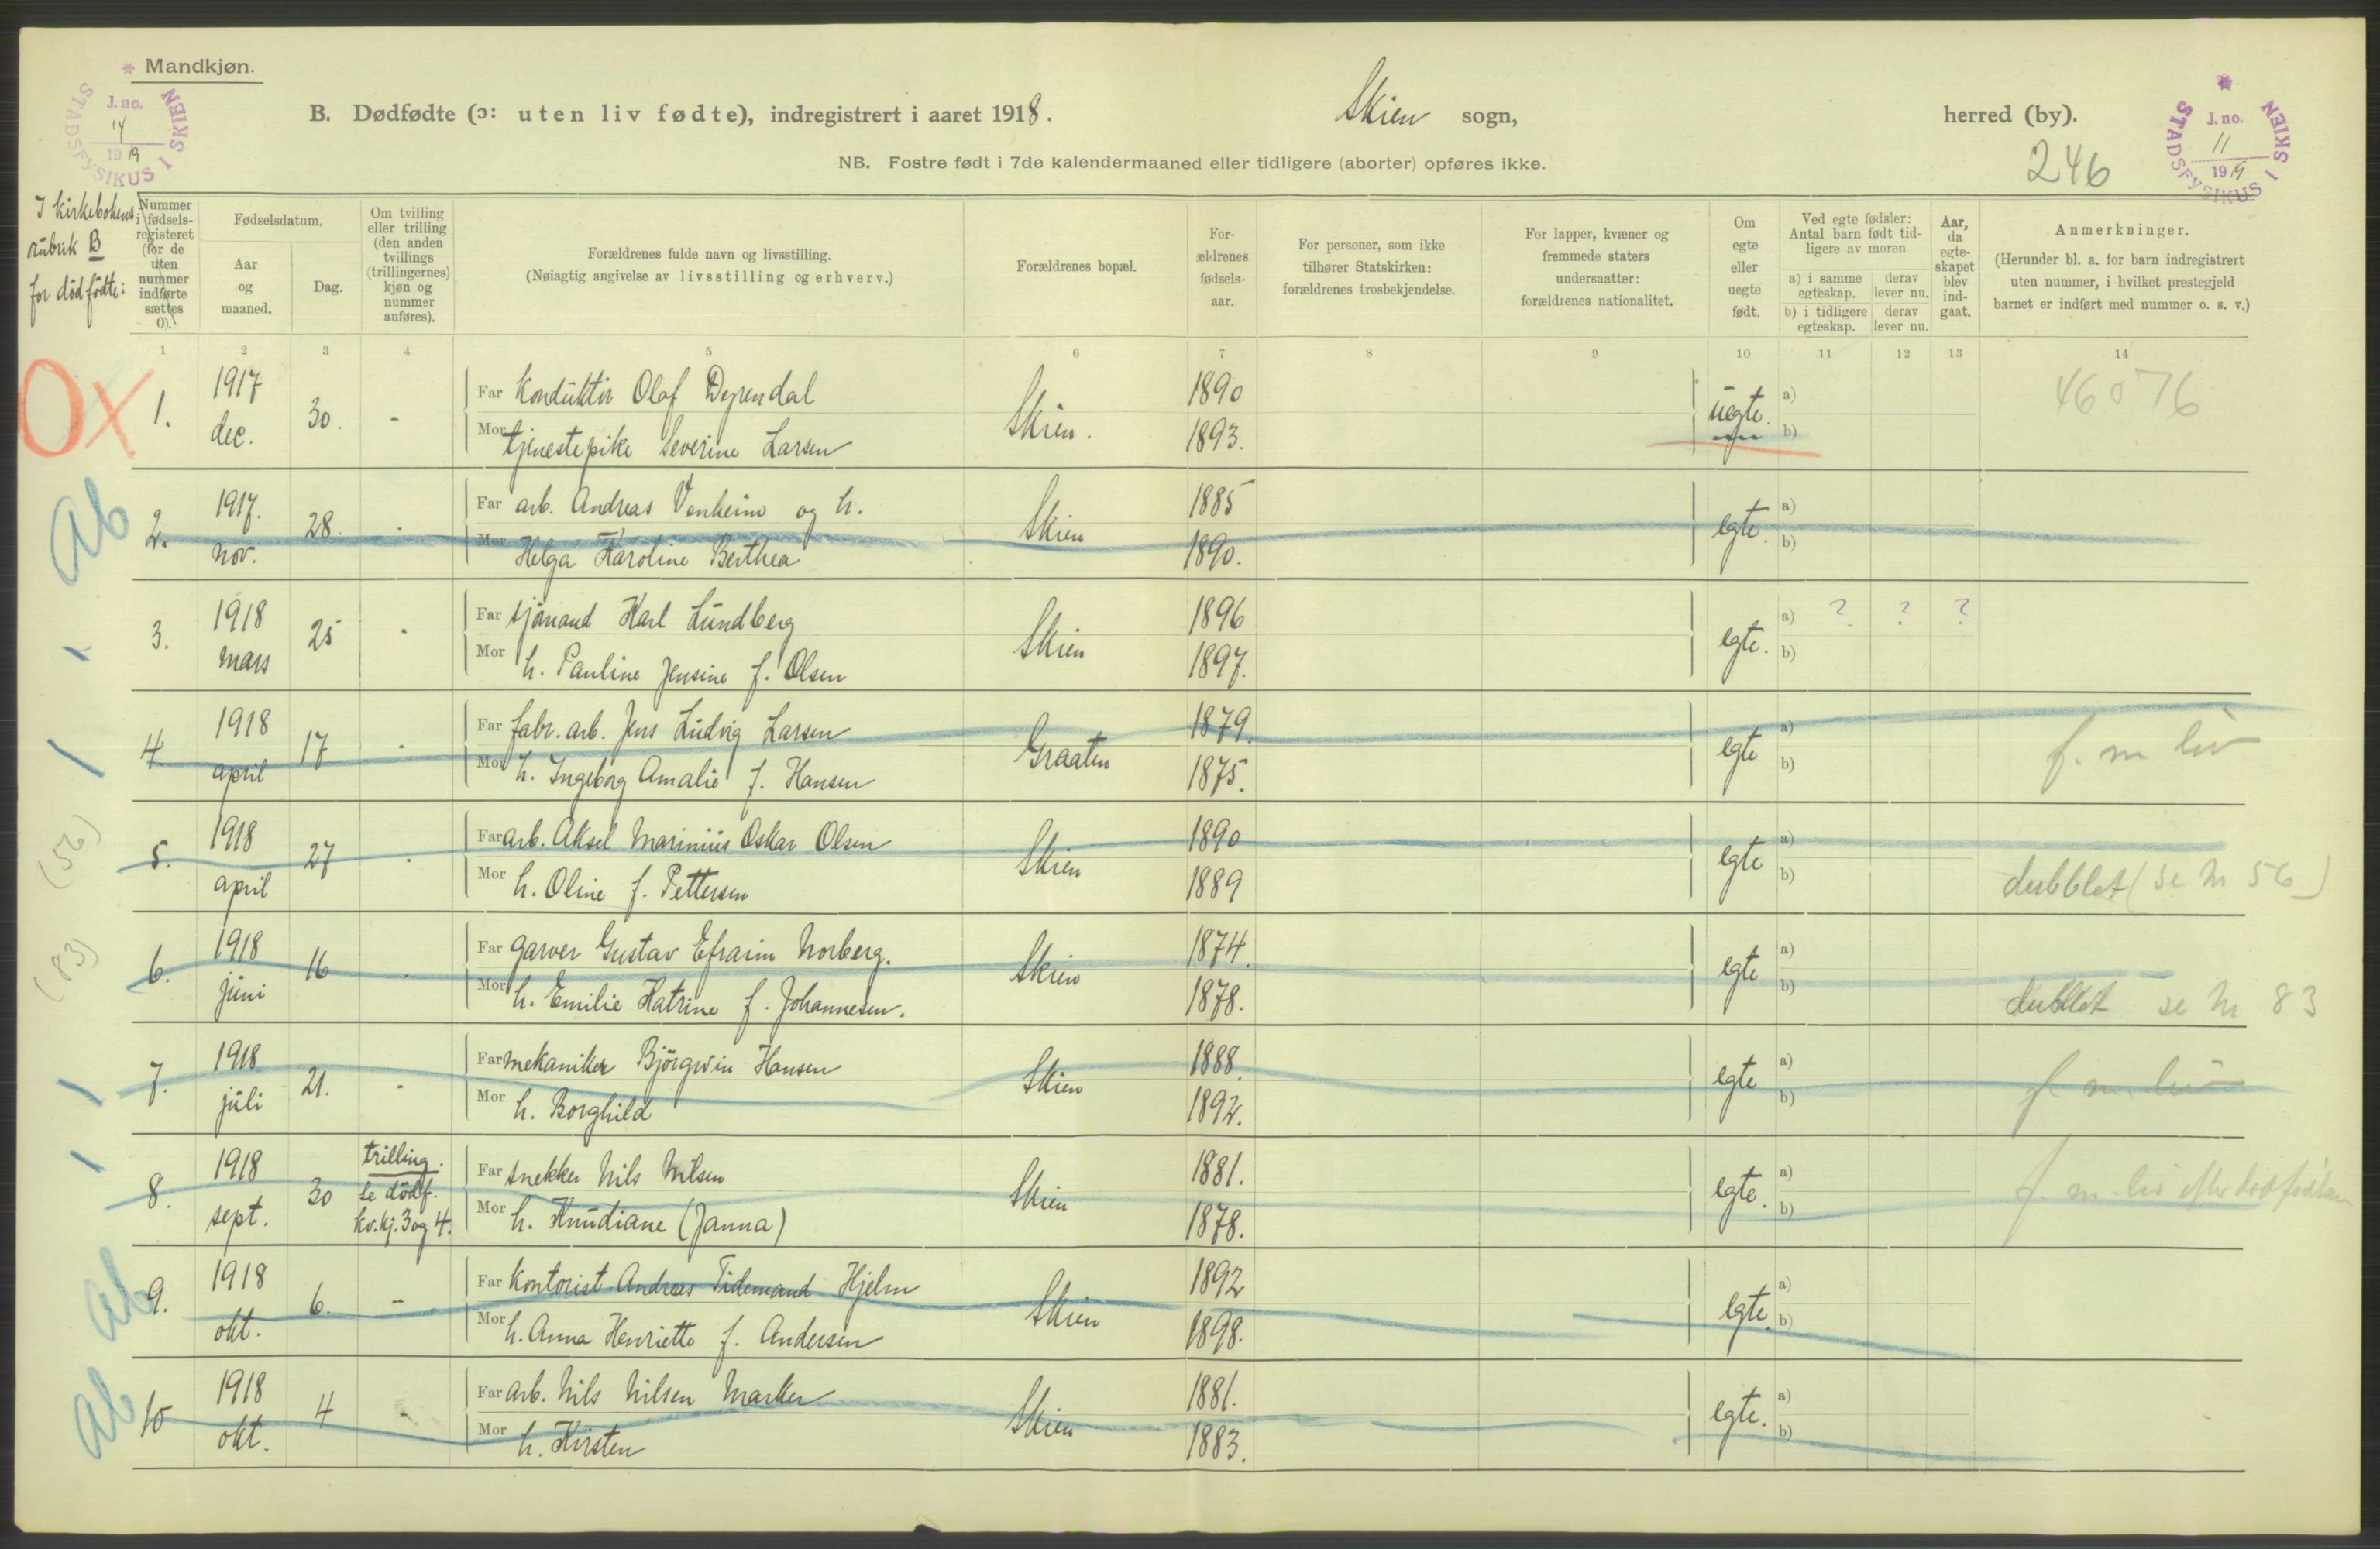 Mandkjøn.
STADSFYSIKUS I SKIEN
J. no.
14
1919
B. Dødfødte (ɔ: uten liv fødte), indregistrert i aaret 1918.
Skien sogn,
herred (by).
STADSFYSIKUS I SKIEN
J. no.
11
1919
NB. Fostre født i 7de kalendermaaned eller tidligere (aborter) opføres ikke.
246
I kirkebokens
rubrik B
for dødfødte:
Nummer
i fødsels-
registeret
(for de
uten
nummer
indførte
sættes
0).
Fødselsdatum.
Aar
og
maaned.
Dag.
Om tvilling
eller trilling
(den anden
tvillings
(trillingernes)
kjøn og
nummer
anføres).
Forældrenes fulde navn og livsstilling.
(Nøiagtig angivelse av livsstilling og erhverv.)
Forældrenes bopæl.
For-
ældrenes
fødsels-
aar.
For personer, som ikke
tilhører Statskirken:
forældrenes trosbekjendelse.
For lapper, kvæner og
fremmede staters
undersaatter:
forældrenes nationalitet.
Om
egte
eller
uegte
født.
Ved egte fødsler:
Antal barn født tid-
ligere av moren
a) i samme egteskap.
derav lever nu.
b) i tidligere egteskap.
derav lever nu.
Aar,
da
egte-
skapet
blev
ind-
gaat.
Anmerkninger.
(Herunder bl. a. for barn indregistrert
uten nummer, i hvilket prestegjeld
barnet er indført med nummer o. s. v.)
1 2 3 4 5 6 7 8 9 10 11 12 13 14
OX
1. 1917 dec. 30. -
Far Konduktør Olaf Dyrendal
Mor tjenestepike Severine Larsen
Skien. 1890 1893. uegte. a) b) 46076
ab
2. 1917. nov. 28. -
Far arb. Andreas Venheim og h.
Mor Helga Karoline Berthea
Skien 1885 1890. egte. a) b)
3. 1918 mars 25 -
Far sjømand Karl Lundberg
Mor h. Pauline Jensine f. Olsen
Skien 1896 1897. egte. a) ? ? ? b)
4. 1918 april 17 -
Far fabr. arb. Jens Ludvig Larsen
Mor h. Ingeborg Amalie f. Hansen
Graaten 1879. 1875. egte a) b) f. m liv
(56)
5. 1918 april 27 -
Far arb. Aksel Marinius Oskar Olsen
Mor h. Oline f. Pettersen
Skien 1890 1889 egte a) b) dubblet (se nr 56)
(83)
6. 1918 juni 16 -
Far garver Gustav Efraim Norberg.
Mor h. Emilie Katrine f. Johannesen.
Skien 1874. 1878. egte a) b) dubblet se nr 83
7. 1918 juli 21. -
Far mekaniker Bjørgvin Hansen
Mor h. Borghild
Skien 1888. 1892. egte a) b) f. m. liv
8. 1918 sept. 30 trilling. se dødf. kv.kj. 3 og 4.
Far snekker Nils Nilsen
Mor h. Knudiane (Janna)
Skien 1881. 1878. egte. a) b) f. m. liv efter
ab
9. 1918 okt. 6. -
Far Kontorist Andreas Tidemand Hjelm
Mor h. Anna Henriette f. Andersen
Skien 1892 1898. egte. a) b)
ab
10 1918 okt. 4 -
Far arb. Nils Nilsen Marker
Mor h. Kirsten
Skien 1881. 1883. egte. a) b)